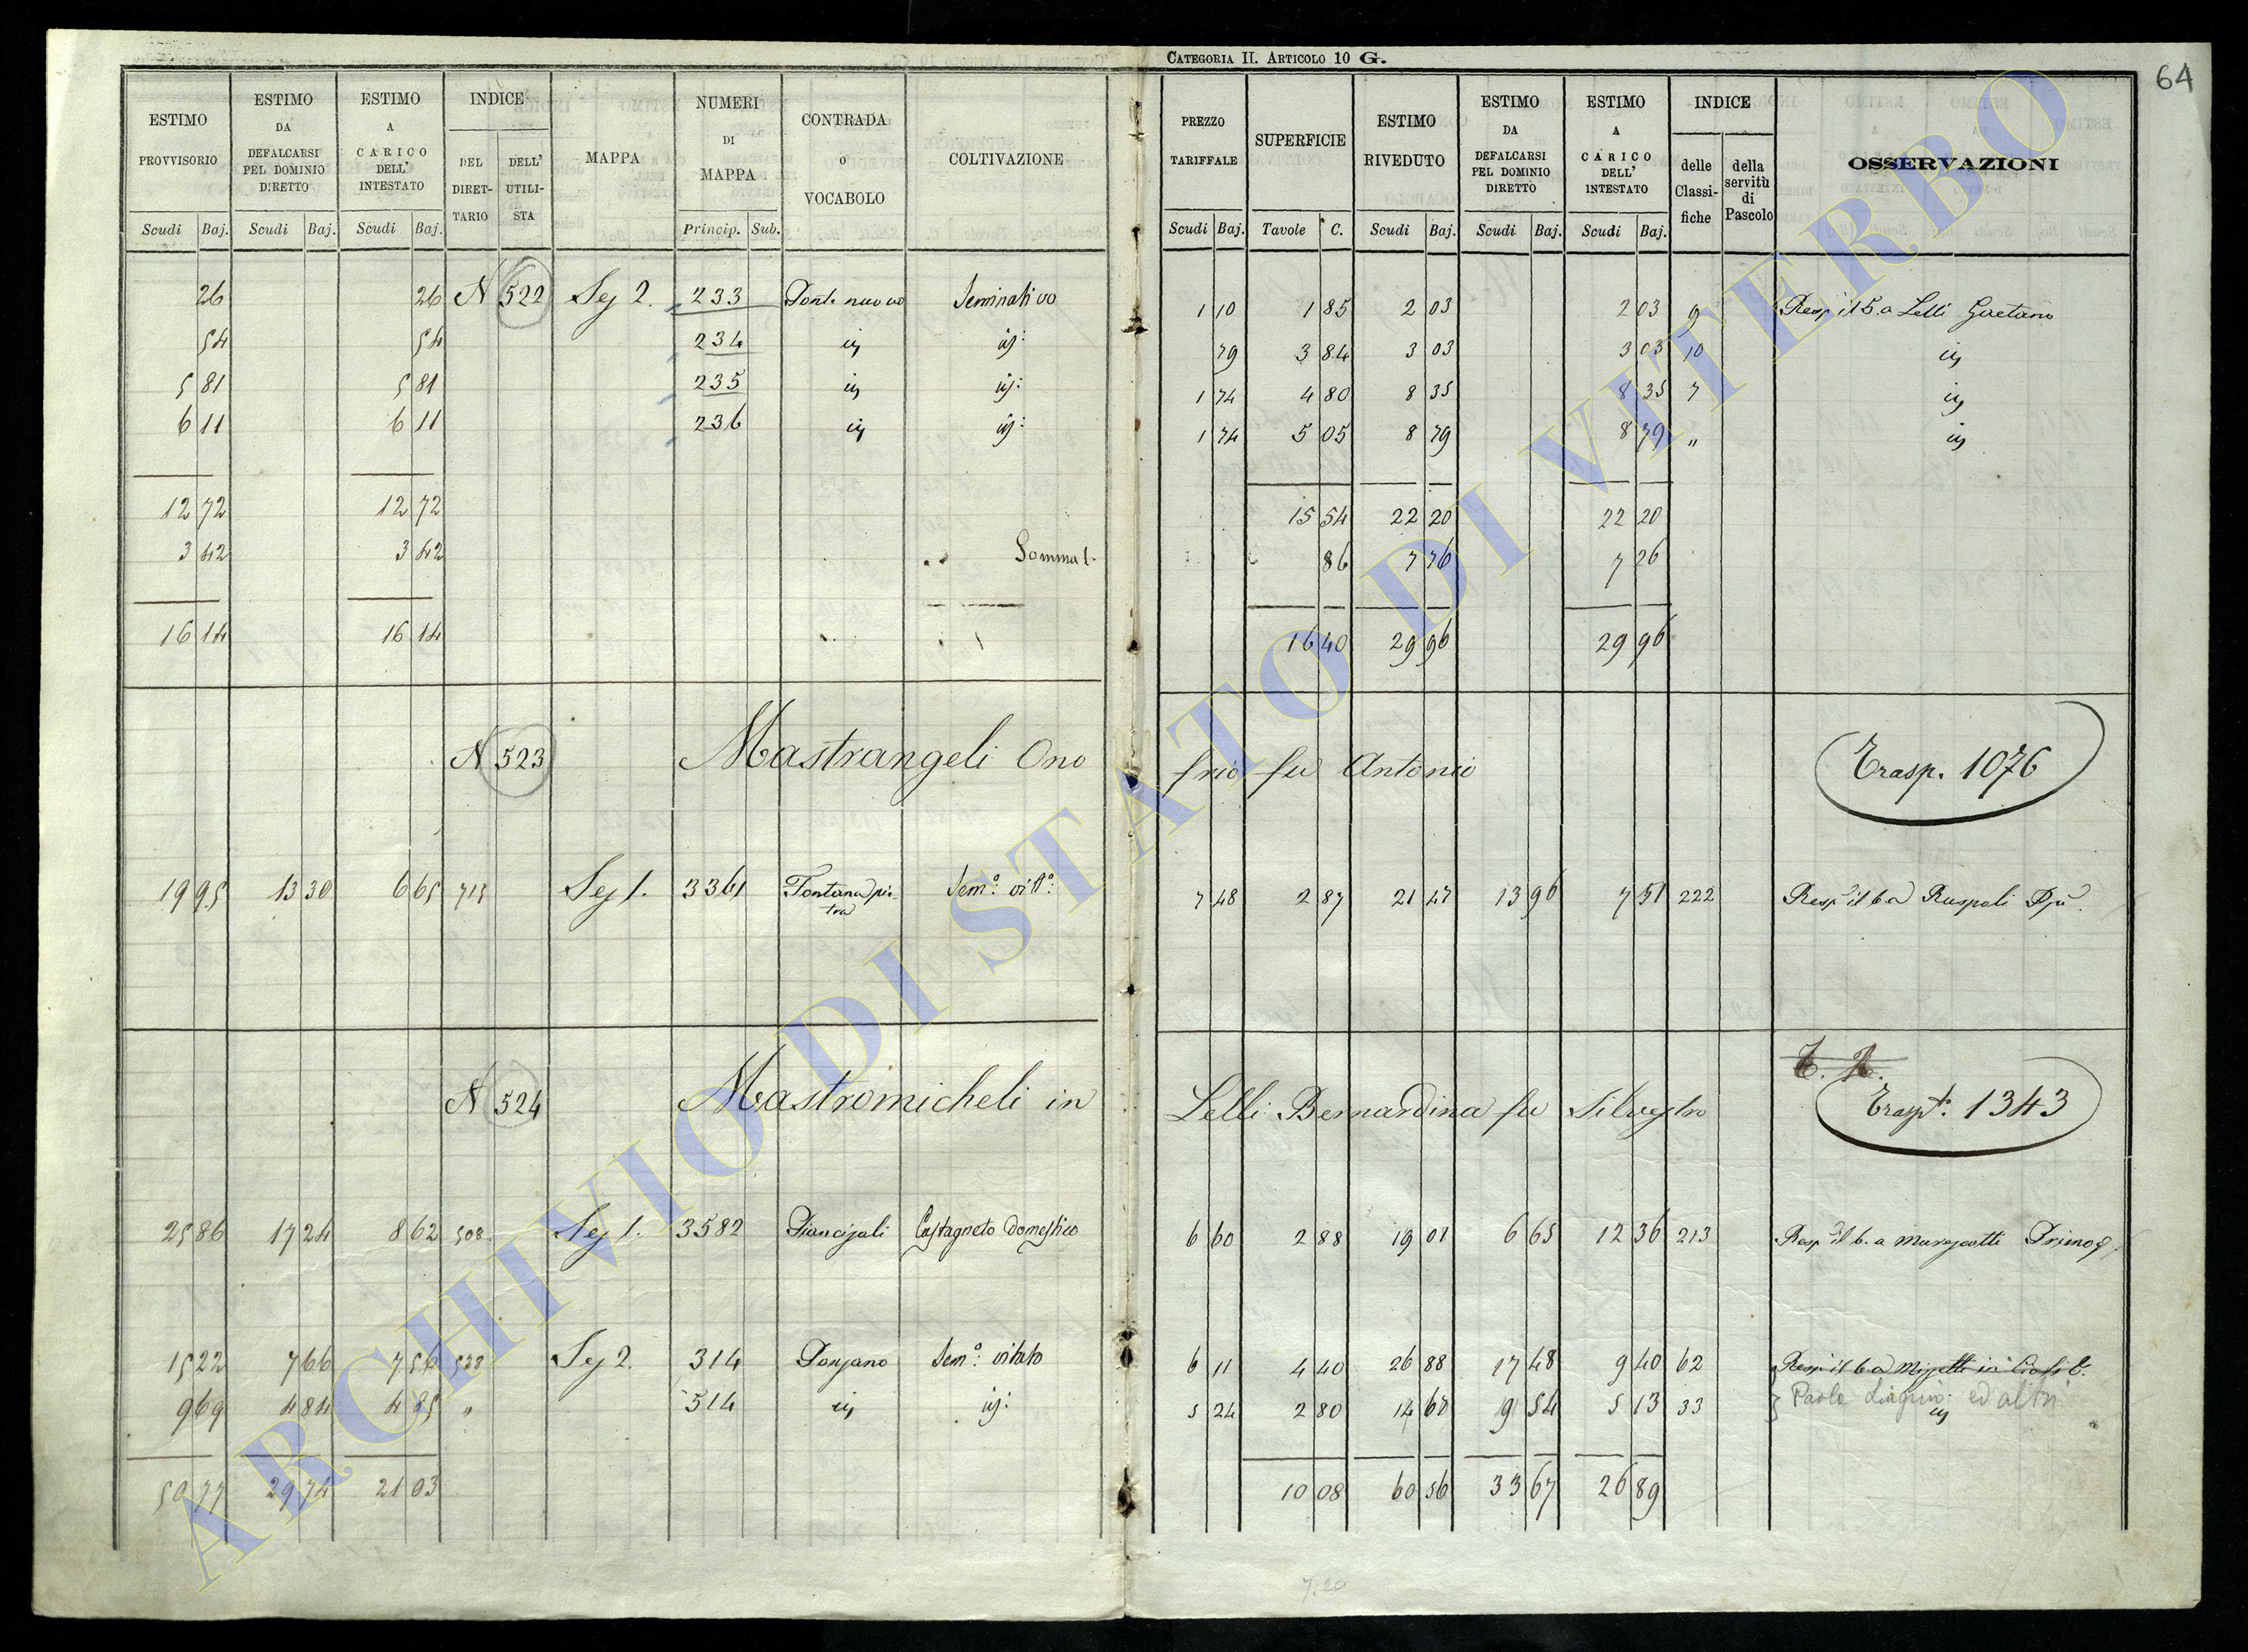 CATEGORIA II. ARTICOLO 10 G.
64
ESTIMO PROVVISORIO Scudi Baj.
ESTIMO DA DEFALCARSI PEL DOMINIO DIRETTO Scudi Baj.
ESTIMO A CARICO DELL' INTESTATO Scudi Baj.
INDICE DEL DIRET-TARIO DELL' UTILI-STA
MAPPA
NUMERI DI MAPPA Princip. Sub.
CONTRADA O VOCABOLO
COLTIVAZIONE
PREZZO TARIFFALE Scudi Baj.
SUPERFICIE Tavole C.
ESTIMO RIVEDUTO Scudi Baj.
ESTIMO DA DEFALCARSI PEL DOMINIO DIRETTO Scudi Baj.
ESTIMO A CARICO DELL' INTESTATO Scudi Baj.
INDICE delle Classi-fiche della servitù di Pascolo
OSSERVAZIONI
26 26 N 522 Sez 2. 233 Ponte nuovo Seminativo 1 10 1 85 2 03 2 03 9 Resp. il 5. a Lelli Gaetano
54 54 234 79 3 84 3 03 3 03 10
5 81 5 81 235 1 74 4 80 8 35 8 35 7
6 11 6 11 236 1 74 5 05 8 79 8 79 "
12 72 12 72 15 54 22 20 22 20
3 42 3 42 Somma 86 7 76 7 26
16 14 16 14 16 40 29 96 29 96
N 523 Mastrangeli Ono frio fu Antonio Trasp. 1076
19 95 13 30 6 65 715 Sez 1. 3361 Fontana pie-tra Sem.° vit.° 7 48 2 87 21 47 13 96 7 51 222 Resp. il 6 a Ruspoli
N 524 Mastromicheli in Lelli Bernardina fu Silvestro Trasp.t 1343
25 86 17 24 8 62 508 Sez 1. 3582 Piancisali Castagneto Domestico 6 60 2 88 19 01 6 65 12 36 213 Resp. il 6. a
15 22 7 66 7 56 528 Sez 2. 314 Ponzano Sem.° vitato 6 11 4 40 26 88 17 48 9 40 62 Resp. il 6 a
9 69 4 84 4 85 " 514 5 24 2 80 14 67 9 54 5 13 33 Paolo ed altri
50 77 29 74 21 03 10 08 60 56 33 67 26 89
7.20
ARCHIVIO DI STATO DI VITERBO